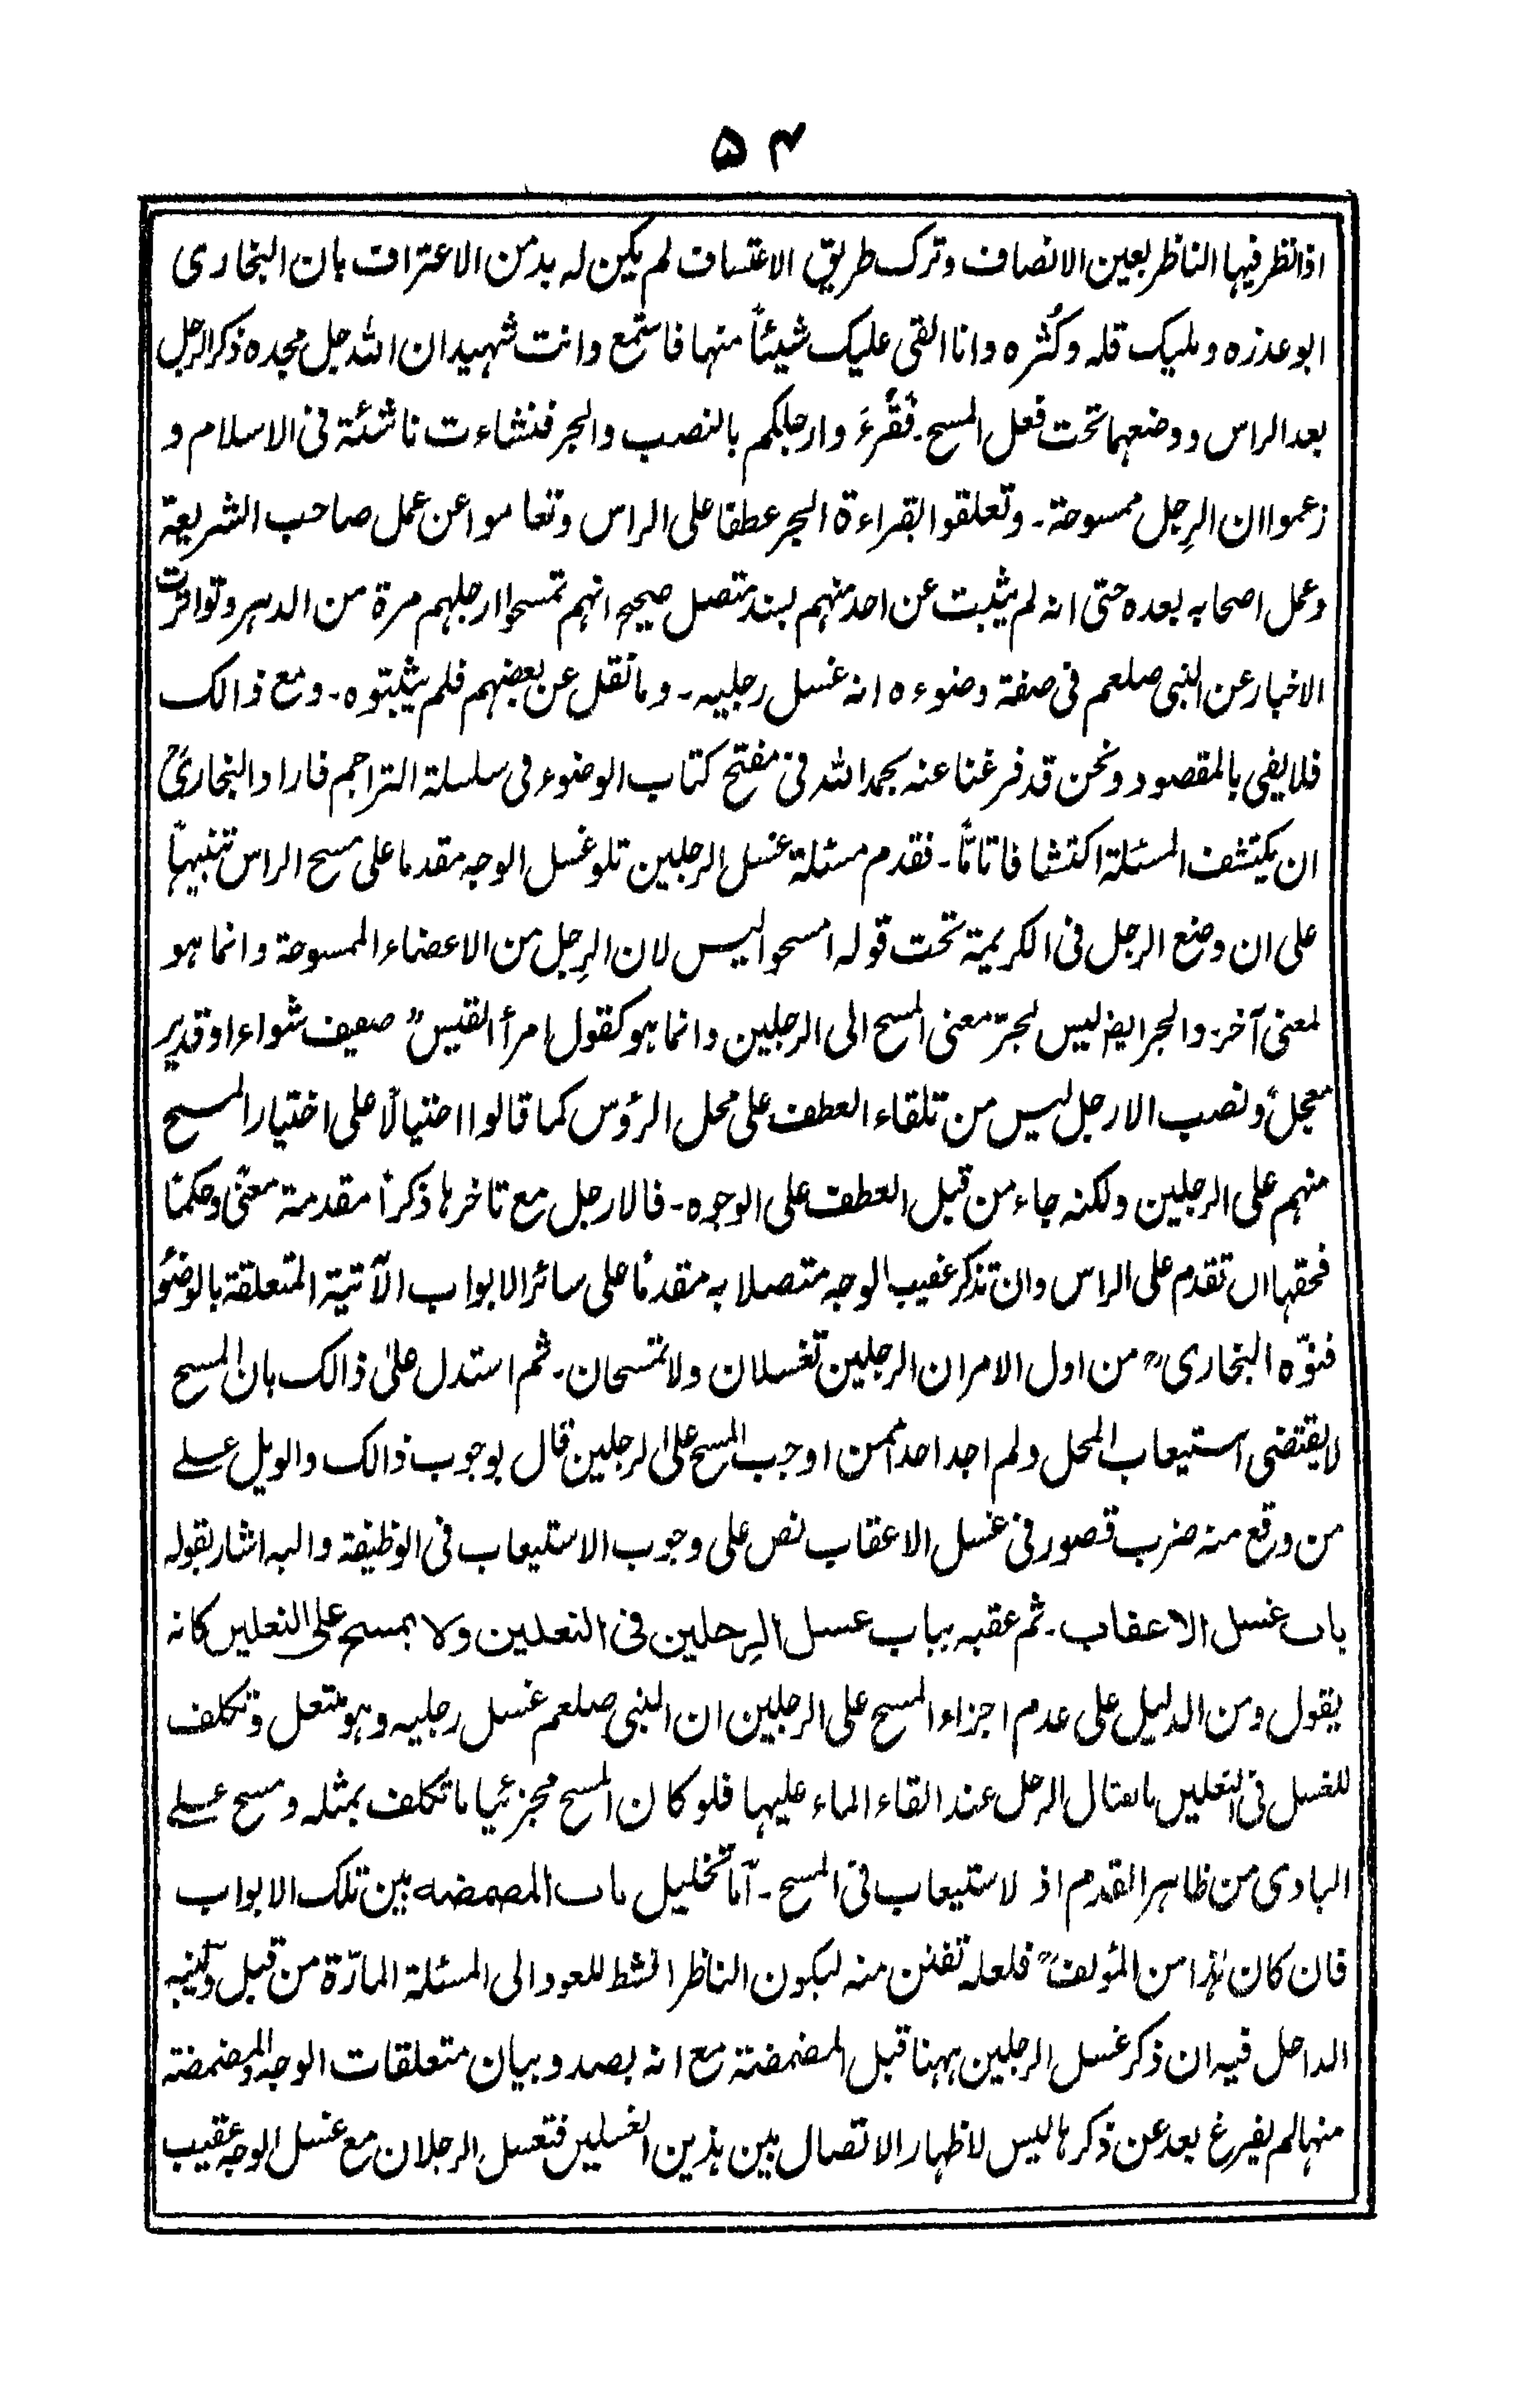 ۵۴
اذا نظر فیہا الناظر بعین الانصاف و ترک طریق الاعتساف لم یکن لہ بد من الاعتراف بان البخاری
ابو عذرہ و ملیک قلہ و کُثرہ و انا القی علیک شیئاً منہا فاستمع و انت شہید ان اللہ جل مجدہ ذکر الرجل
بعد الراس و وضعہما تحت فعل المسح۔ فقُرءَ و ارجلکم بالنصب و الجر فنشاءت ناشئة فی الاسلام و
زعموا ان الرِجل ممسوحة۔ و تعلقوا بقراءة الجر عطفا علی الراس و تعاموا عن عمل صاحب الشریعة
و عمل اصحابہ بعدہ حتی انہ لم یثبت عن احد منہم بسند متصل صحیح انہم تمسحوا ارجلہم مرة من الدہر و تواترت
الاخبار عن النبی صلعم فی صفة وضوءہ انہ غسل رجلیہ۔ و ما نقل عن بعضہم فلم یثبتوہ۔ و مع ذالک
فلا یفی بالمقصود و نحن قد فرغنا عنہ بحمد اللہ فی مفتح کتاب الوضوء فی سلسلة التراجم فاراد البخاریؒ
ان یکتشف المسئلة اکتشافا تاتاً۔ فقدم مسئلة غسل الرجلین تلو غسل الوجہ مقدما علی مسح الراس تنبیہاً
علی ان وضع الرجل فی الکریمة تحت قولہ امسحوا لیس لان الرِجل من الاعضاء الممسوحة و انما ہو
لمعنی آخر۔ و الجر ایضا لیس لجرّ معنی المسح الی الرجلین و انما ہو کقول امرأ القیس ؎ صفیف شواء او قدیر
معجل و نصب الارجل لیس من تلقاء العطف علی محل الرؤس کما قالوا احتیالاً علی اختیار المسح
منہم علی الرجلین و لکنہ جاء من قبل العطف علی الوجوہ۔ فالارجل مع تاخرہا ذکراً مقدمة معنًی و حکمًا
فحقہا ان تقدم علی الراس و ان تذکر عقیب الوجہ متصلا بہ مقدمًا علی سائر الابواب الآتیة المتعلقة بالوضوُ
فنوّہ البخاریؒ من اول الامر ان الرجلین تغسلان و لا تمسحان۔ ثم استدل علیٰ ذالک بان المسح
لا یقتضی استیعاب المحل و لم اجد احداً ممن اوجب المسح علی الرجلین قال بوجوب ذالک و الویل علے
من وقع منہ ضرب قصور فی غسل الاعقاب نص علی وجوب الاستیعاب فی الوظیفة و الیہ اشار بقولہ
باب غسل الاعقاب۔ ثم عقبہ بباب غسل الرِجلین فی النعلین ولا یمسح علی النعلین کانہ
یقول و من الدلیل علی عدم اجزاء المسح علی الرجلین ان النبی صلعم غسل رجلیہ و ہو منتعل و تکلف
للغسل فی النعلین بالفتال الرجل عند القاء الماء علیہا فلو کان المسح مجزئیا ما تکلف بمثلہ و مسح علے
البادی من ظاہر القدم اذ لا ستیعاب فی المسح۔ اَمّا تخلیل باب المضمضہ بین تلک الابواب
فان کان ہٰذا من المؤلفؒ فلعلہ تفنن منہ لیکون الناظر انشط للعود الی المسئلة المارّة من قبل و لینبہ
الداخل فیہ ان ذکر غسل الرجلین ہہنا قبل المضمضة مع انہ بصدد بیان متعلقات الوجہ و المضمضة
منہا لم یفرغ بعد عن ذکرہا لیس لا ظہار الاتصال بین ہذین الغسلین فتغسل الرجلان مع غسل الوجہ عقیب